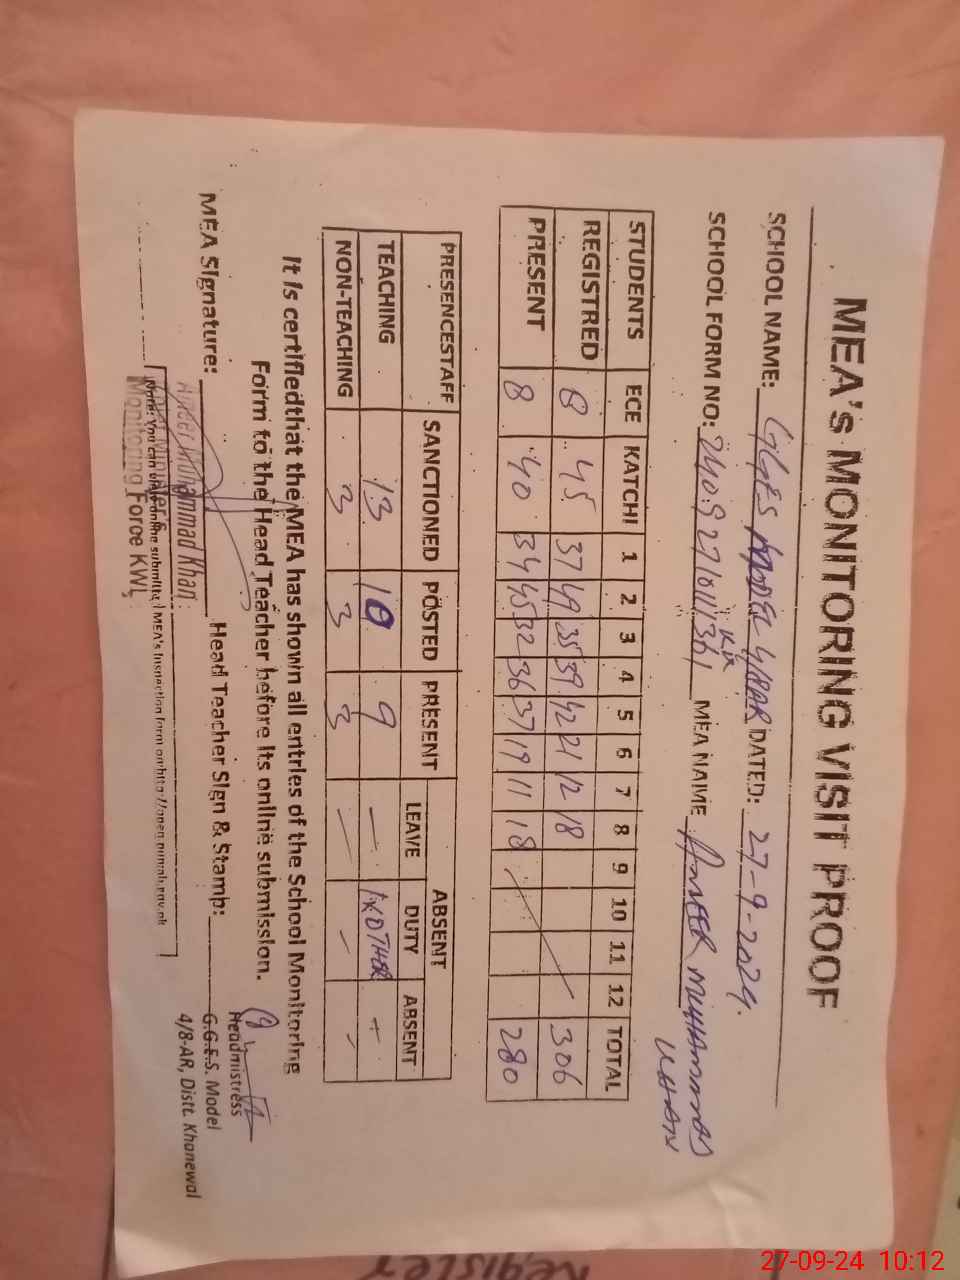 MEA's MONITORING VISIT PROOF
SCHOOL NAME: GGES MODEL 4/8AR DATED: 27-9-2024.
KWL
SCHOOL FORM NO: MEA NAME AMEER MUHAMMAD
KHAN
STUDENTS ECE KATCHI 1 2 3 4 5 6 7 8 9 10 11 12 TOTAL
REGISTRED 8 45 37 49 35 39 42 21 12 18 306
PRESENT 8 40 34 45 32 36 37 19 11 18 280
PRESENCESTAFF SANCTIONED POSTED PRESENT ABSENT
LEAVE DUTY ABSENT
TEACHING 13 10 9 — 1XOTHER +
NON-TEACHING 3 3 3 — - -
It is certifiedthat the MEA has shown all entries of the School Monitoring
Form to the Head Teacher before its online submission.
MEA Signature: Head Teacher Sign & Stamp:
Headmistress
G.G.E.S. Model
4/8-AR, Distt. Khanewal
Ameer Muhammad Khan
Monitoring Force KWL
Note: You can view online submitted MEA's Inspection form on http://open.punjab.gov.pk
Register
27-09-24 10:12